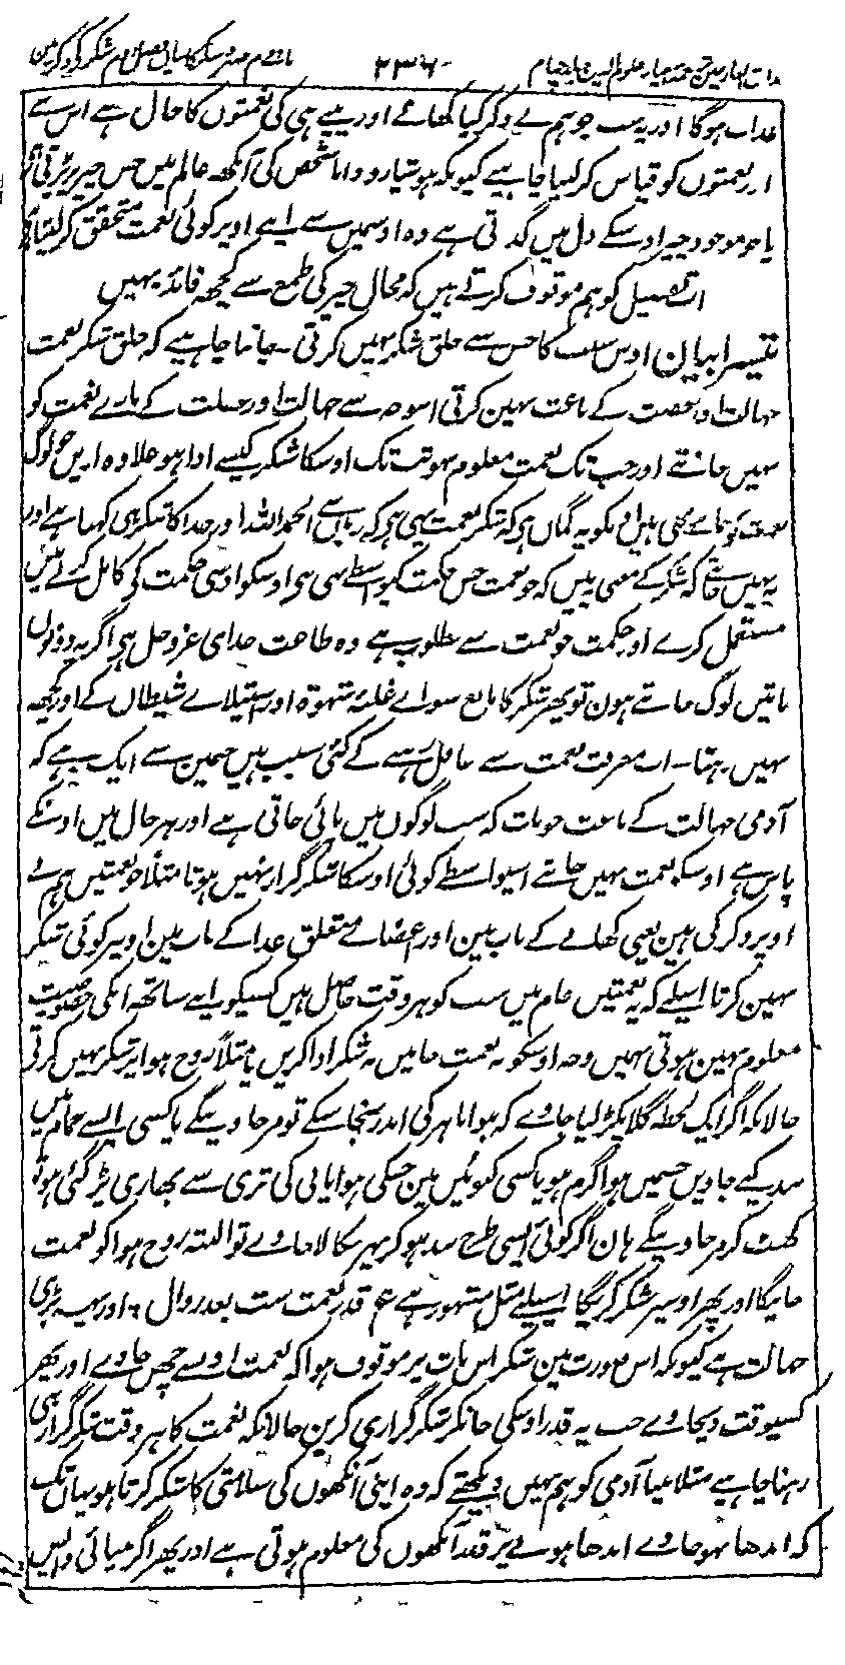 مذاق العارفین ترجمہ احیاء علوم الدین جلد چہارم ۲۳۶ باب دوم صبر و شکر کا بیان فصل دوم شکر کے ذکر مین
عذاب ہوگا اور یہ سب جو ہم نے ذکر کیا کھانے اور پینے ہی کی نعمتوں کا حال ہے اس سے
اور نعمتوں کو قیاس کر لینا چاہیے کیونکہ ہوشیار و دانا شخص کی آنکھ عالم میں جس چیز پر پڑتی ہے
یا جو موجود چیز اوسکے دل میں گذرتی ہے وہ اوسمیں سے اپنے اوپر کوئی نعمت متحقق کر لیتا ہے
اب تفصیل کو ہم موقوف کرتے ہیں کہ محال چیز کی طمع سے کچھ فائدہ نہیں
تیسرا بیان اوس سبب کا جس سے خلق شکر نہیں کرتی۔ جاننا چاہیے کہ خلق شکر نعمت
جہالت اور غفلت کے باعث نہین کرتی اسوجہ سے جہالت اور غفلت کے مارے نعمت کو
نہیں جانتے اور جب تک نعمت معلوم نہو تب تک اوسکا شکر کیسے ادا ہو علاوہ ازیں جو لوگ
نعمت کو جانتے بھی ہیں اونکو یہ گمان ہی کہ شکر نعمت یہی ہی کہ زبان سے الحمد للہ اور خدا کا شکر ہی کہنا ہے اور
یہ نہیں جانتے کہ شکر کے معنی یہ ہیں کہ جو نعمت جس حکمت کیواسطے بنی ہی اوسکو اوسی حکمت کی کامل کرنے میں
مستعمل کرے اور حکمت جو نعمت سے مطلوب ہے وہ طاعت خدای عز و جل ہی اگر یہ دونوں
باتیں لوگ جانتے ہون تو پھر شکر کا مانع سواے غلبۂ شہوۃ اور استیلاے شیطان کے اور کچھ
نہیں رہتا۔ اب معرفت نعمت سے غافل رہنے کے کئی سبب ہیں جنمین سے ایک یہ ہے کہ
آدمی جہالت کے باعث جو بات کہ سب لوگوں میں پائی جاتی ہے اور ہر حال میں اونکے
پاس ہے اوسکو نعمت نہیں جانتے اسیواسطے کوئی اوسکا شکر گزار نہیں ہوتا مثلاً جو نعمتیں ہم نے
اوپر ذکر کی ہین یعنی کھانے کے باب مین اور اعضاے متعلق غذا کے باب مین اونپر کوئی شکر
نہین کرتا اسلیے کہ یہ نعمتیں عام ہیں سب کو ہر وقت حاصل ہیں کسیکو اپنے ساتھ انکی خصوصیت
معلوم نہین ہوتی نہیں وجہ اوسکو نہ نعمت جانیں نہ شکر ادا کریں یا مثلاً روح ہوا پر شکر نہیں کرتی
حالانکہ اگر ایک لحظہ گلا پکڑ لیا جاوے کہ ہوا باہر کی اندر نجا سکے تو مر جاوینگے یا کسی ایسے حمام میں
بند کیے جاویں جسمیں ہوا گرم ہو یا کسی کنوئیں مین جسکی ہوا پانی کی تری سے بھاری پڑ گئی ہو تو
گھٹ کر مر جاوینگے ہان اگر کوئی ایسی طرح بند ہو کر پھر نکالا جاوے تو البتہ روح ہوا کو نعمت
جانیگا اور پھر اوسپر شکر کریگا اسیلیے مثل مشہور ہے ع قدر نعمت ست بعد زوال ؛ اور یہ بڑی
جہالت ہے کیونکہ اس صورت مین شکر اس بات پر موقوف ہوا کہ نعمت اوسسے چھن جاوے اور پھر
کسیوقت دیجاوے جب یہ قدر اوسکی جانکر شکر گزاری کرین حالانکہ نعمت کا ہر وقت شکر گزار ہی
رہنا چاہیے مثلاً بینا آدمی کو ہم نہیں دیکھتے کہ وہ اپنی آنکھوں کی سلامتی کا شکر کرتا ہو یہاں تک
کہ اندھا ہو جاوے اندھا ہونے پر قدر آنکھوں کی معلوم ہوتی ہے اور پھر اگر بینائی واپس